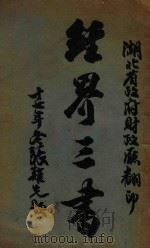 湖北省政府財政廳翻印
經界三書
十七年冬張難先